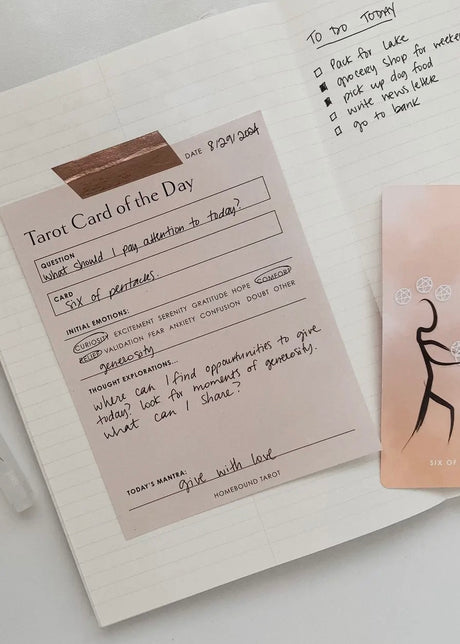 DATE 8/29/2024
Tarot Card of the Day
QUESTION
What should I pay attention to today?
CARD
six of pentacles.
INITIAL EMOTIONS:
CURIOSITY EXCITEMENT SERENITY GRATITUDE HOPE COMFORT
RELIEF VALIDATION FEAR ANXIETY CONFUSION DOUBT OTHER
generosity
THOUGHT EXPLORATIONS...
where can I find opportunities to give
today? look for moments of generosity.
What can I share?
TODAY'S MANTRA: give with love
HOMEBOUND TAROT
TO DO TODAY
pack for lake
grocery shop for weeke
pick up dog food
write newsletter
go to bank
SIX OF